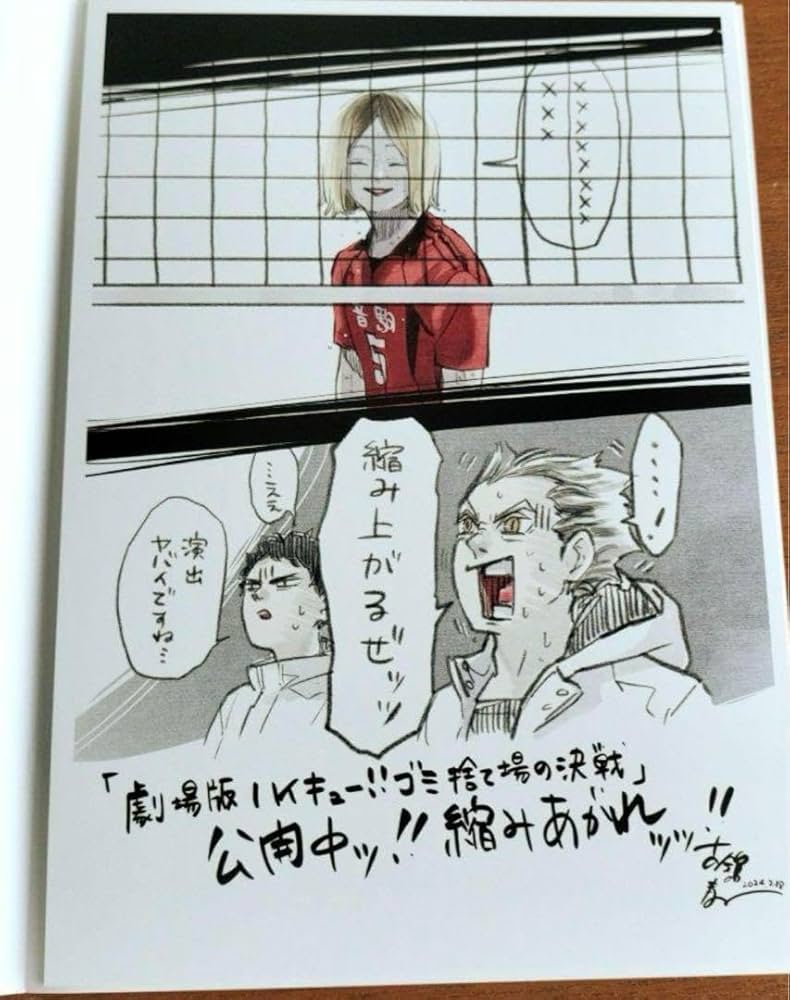 ××××××××
×××
音駒
5
‥‥‥!
縮み上がるぜッッ
‥‥ええ
演出
ヤバイですね…
「劇場版ハイキュー!!ゴミ捨て場の決戦」
公開中ッ!!縮みあがれッッ!!
古舘
春一